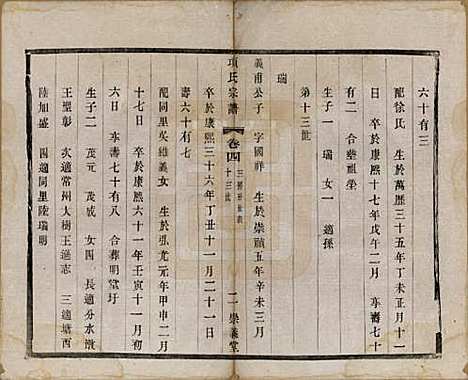 六十有三
配徐氏 生於萬歷三十五年丁未正月十一
日 卒於康熙十七年戊午二月 享壽七十
有二 合塟祖塋
生子一 瑞 女一 適孫
第十三世
瑞
義甫公子 字國祥 生於崇禎五年辛未三月
項氏宗譜 卷四 十三世 二 崇義堂
卒於康熙三十六年丁丑十一月二十一日
壽六十有七
配同里吳維義女 生於弘光元年甲申二月
十七日 卒於康熙六十一年壬寅十一月初
六日 享壽七十有八 合葬明堂圩
生子二 茂元 茂成 女四 長適分水墩
王聖彰 次適常州大樹王遜志 三適塘西
陸旭盛 四適同里陸瑞明